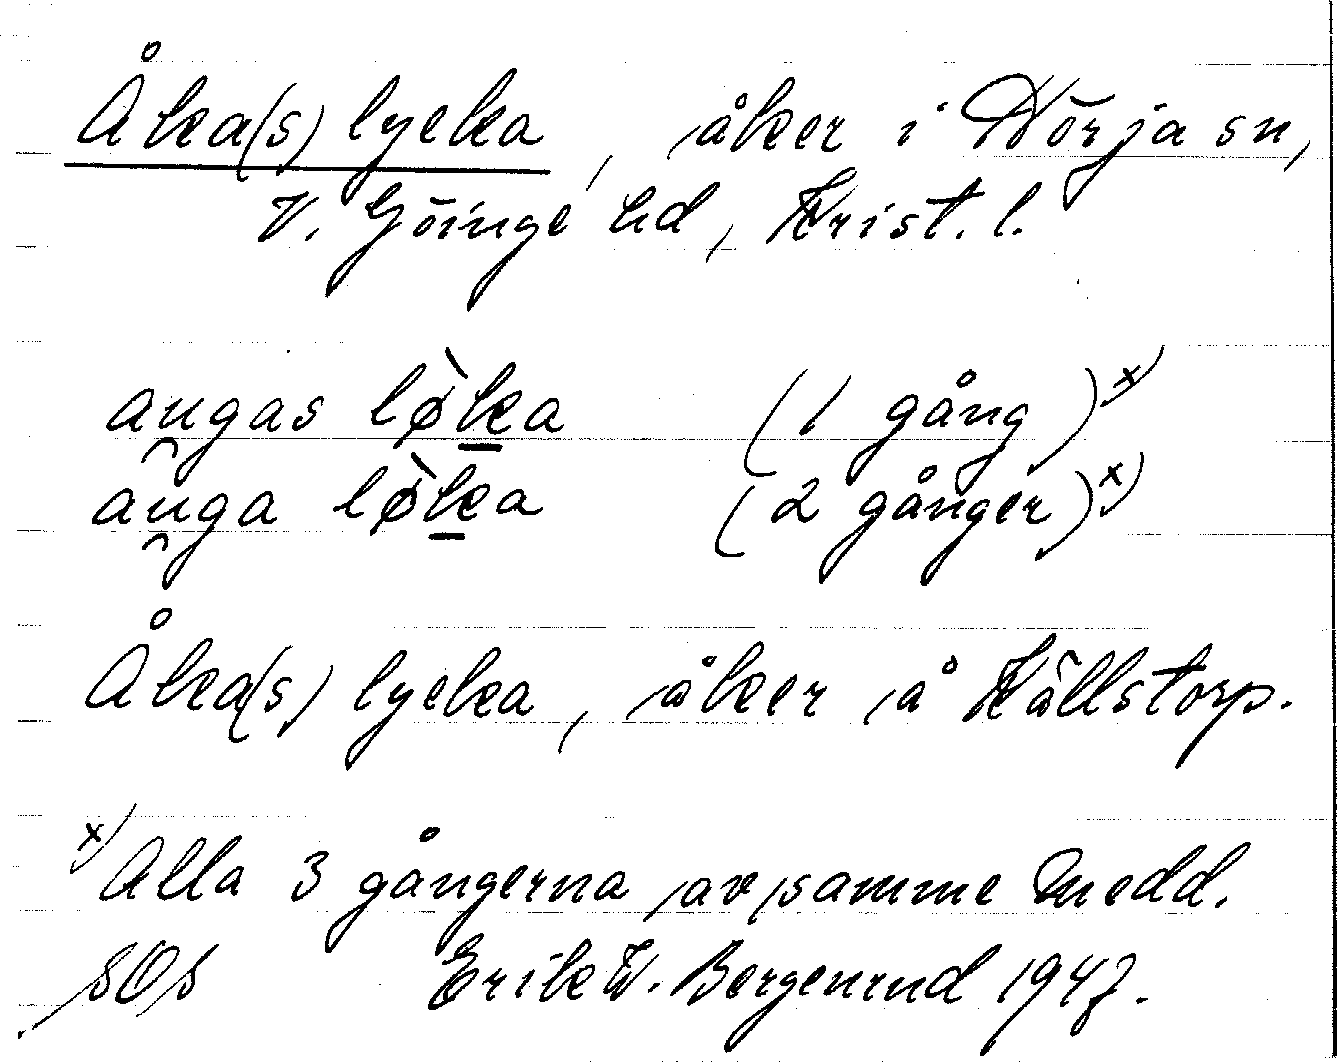 Åka(s) lycka, åker i Nörja sn,
V. Göinge hd, Krist. l.
au̯gas lø̀ka (1 gång)x)
au̯ga lø̀ka (2 gånger)x)
Åka(s) lycka, åker å Källstorp.
x) Alla 3 gångerna av samme medd.
SOS Erik W. Bergenrud 1947.